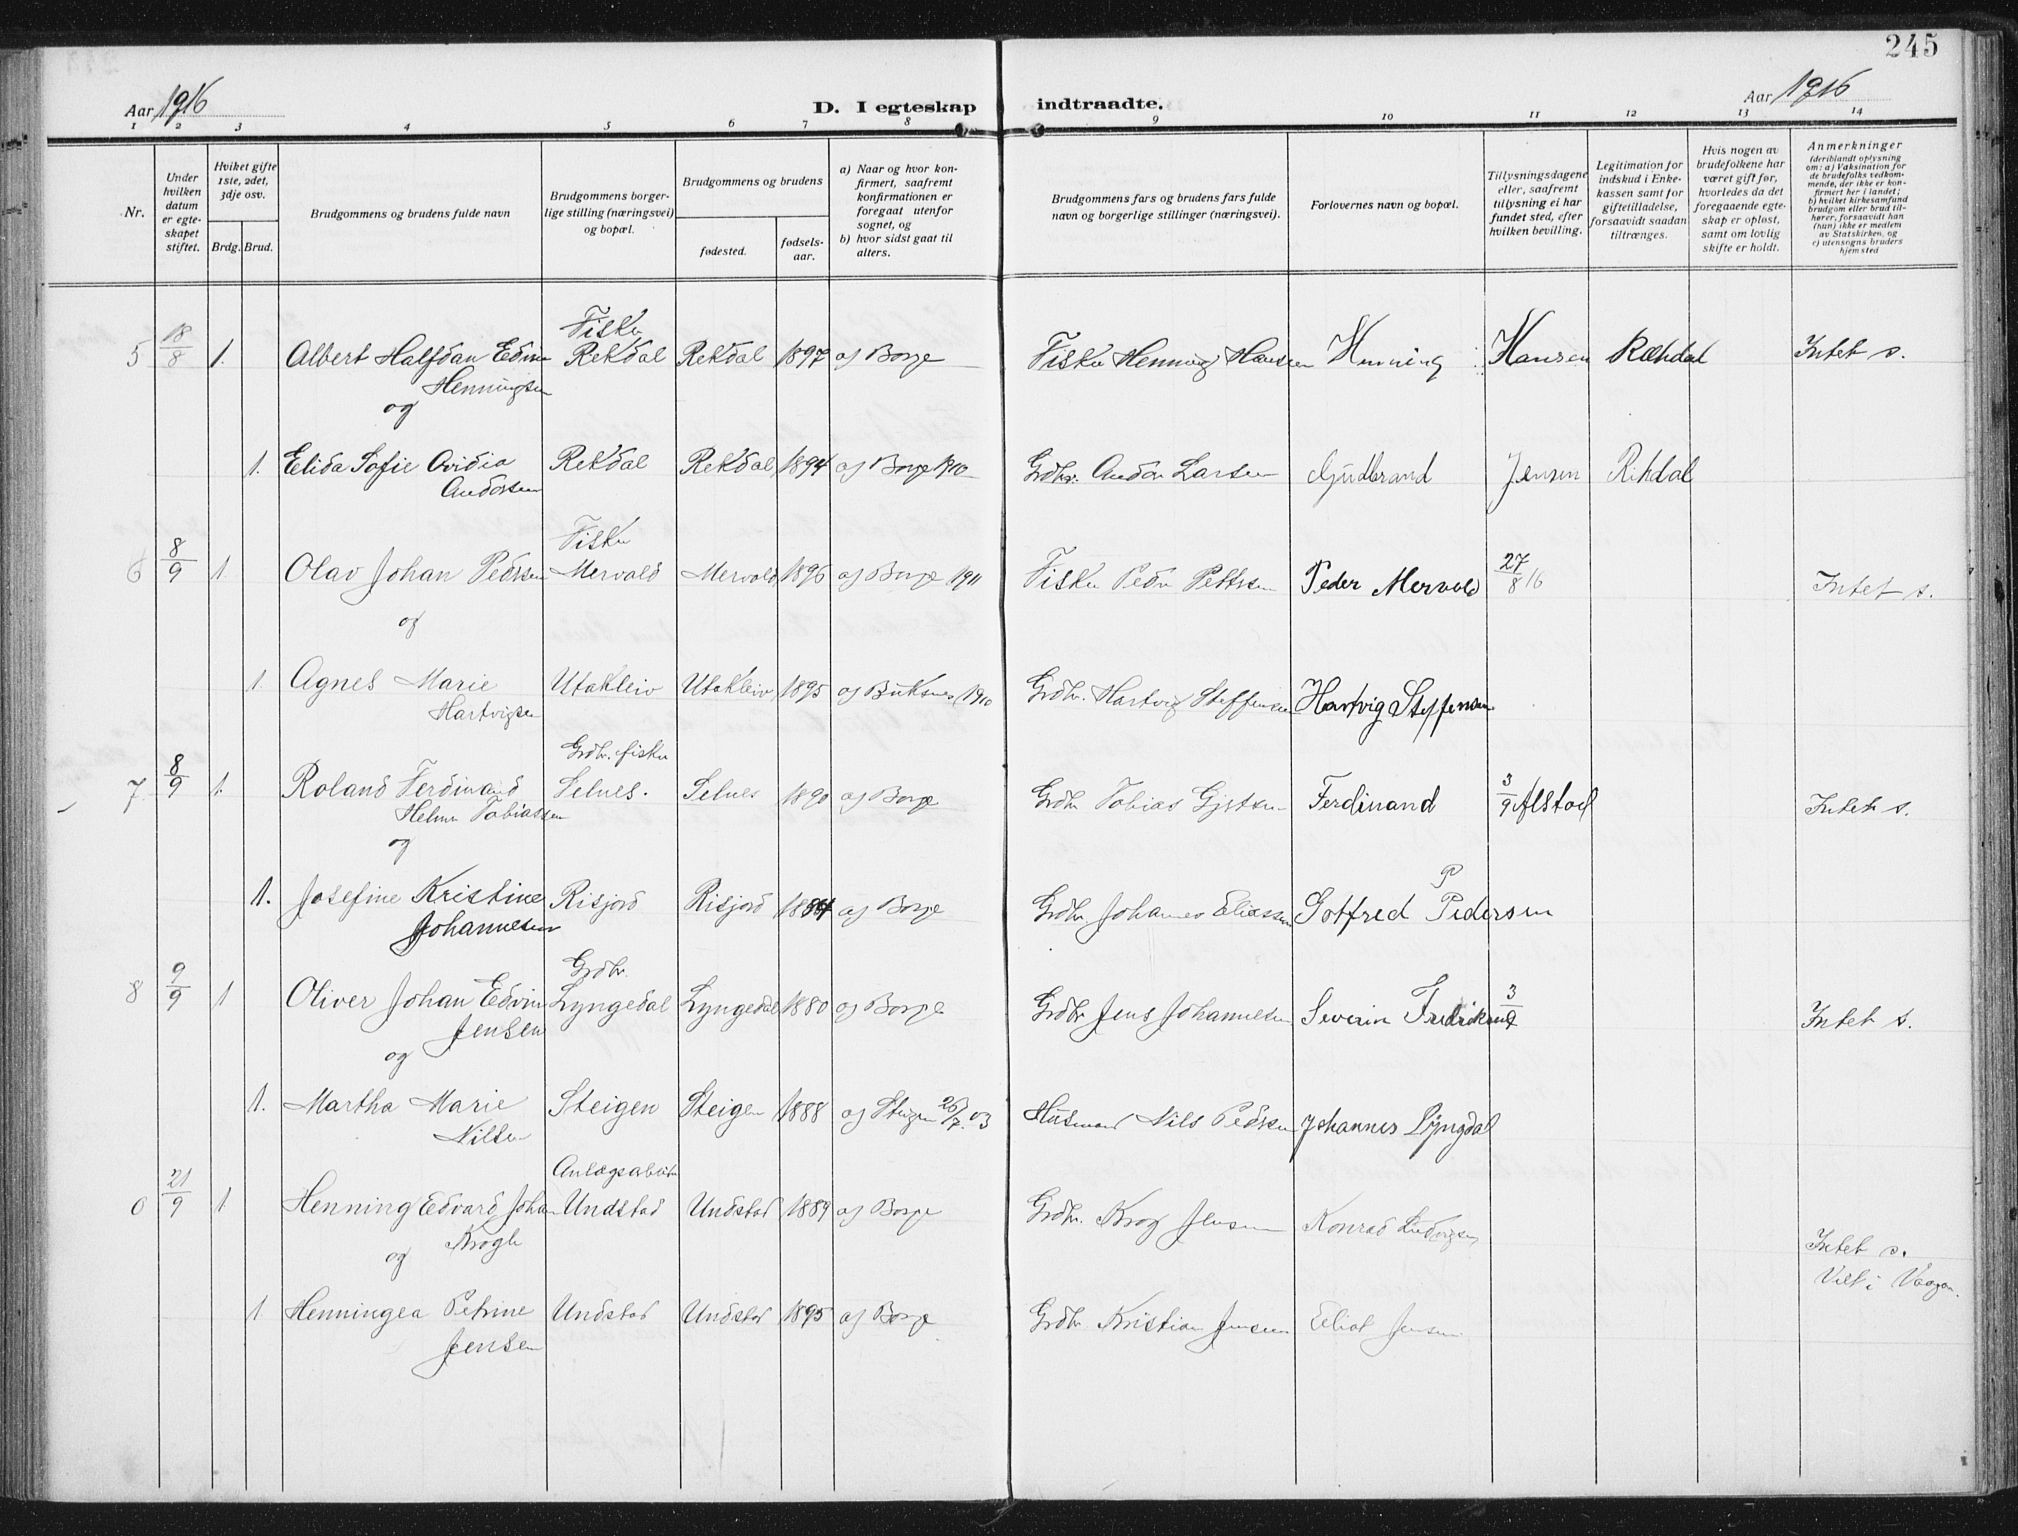 245
Aar 1916
D. I egteskap indtraadte.
Aar 1916
1 2 3 4 5 6 7 8 9 10 11 12 13 14
Nr.
Under hvilken datum er egteskapet stiftet.
Hviket gifte 1ste, 2det, 3dje osv.
Brdg. Brud.
Brudgommens og brudens fulde navn
Brudgommens borgerlige stilling (næringsvei) og bopæl.
Brudgommens og brudens
fødested.
fødselsaar.
a) Naar og hvor konfirmert, saafremt konfirmationen er foregaat utenfor sognet, og
b) hvor sidst gaat til alters.
Brudgommens fars og brudens fars fulde navn og borgerlige stillinger (næringsvei).
Forlovernes navn og bopæl.
Tillysningsdagene eller, saafremt tillysning ei har fundet sted, efter hvilken bevilling.
Legitimation for indskud i Enkekassen samt for giftetilladelse, forsaavidt saadan tiltrænges.
Hvis nogen av brudefolkene har været gift før, hvorledes da det foregaaende egteskap er opløst, samt om lovlig skifte er holdt.
Anmerkninger
(deriblandt oplysning om: a) Vaksination for de brudefolks vedkommende, der ikke er konfirmert her i landet; b) hvilket kirkesamfund brudgom eller brud tilhører, forsaavidt han (hun) ikke er medlem av Statskirken, og c) utensogns bruders hjemsted
Fisker
5 18/8 1. Albert Halfdan Edvin Rekdal Rekdal 1897 og Borge Fisker Henning Hansen Henning Hansen Rekdal Intet s.
Henningsen
og
1. Elida Sofie Ovidia Rekdal Rekdal 1894 og Borge 1910 Grdbr. Andor Larsen Gudbrand Jensen Rekdal
Andorsen
Fisker
6 8/9 1. Olav Johan Pedersen Mervold Mervold 1896 og Borge 1911 Fisker Peder Pettersen Peder Mervold 27/8 16 Intet s.
og
1. Agnes Marie Utakleiv Utakleiv 1895 og Buksnes 1910 Grdbr. Hartvig Steffensen Hartvig Steffensen
Hartvigsen
Grdbr. fisker
7 8/9 1. Roland Ferdinand Selnes. Selnes 1890 og Borge Grdbr Tobias Ferdinand 3/9 Alstad Intet s.
Helmer Tobiassen
og
1. Josefine Kristine Risjord Risjord 1884 og Borge Grdbr Johannes Eliassen Gotfred P Pedersen
Johannesen
Grdbr.
8 9/9 1 Oliver Johan Edvin Lyngedal Lyngedal 1880 og Borge Grdbr Jens Johannesen Severin Fredriksen 3/9 Intet s.
Jensen
og
1. Martha Marie Steigen Steigen 1888 og Steigen 26/7 03 Husmand Nils Pedersen Johannes Lyngdal
Nilsen
Anlægsarbeider
21/9 1 Henning Edvard Johan Undstad Undstad 1889 og Borge Grdbr. Krog Jensen Konrad Ludvigsen
Krogh
og
Intet s.
Viet i Vaagan.
1 Henningea Petrine Undstad Undstad 1895 og Borge Grdbr Kristian Jensen Eliot Jensen
Jensen